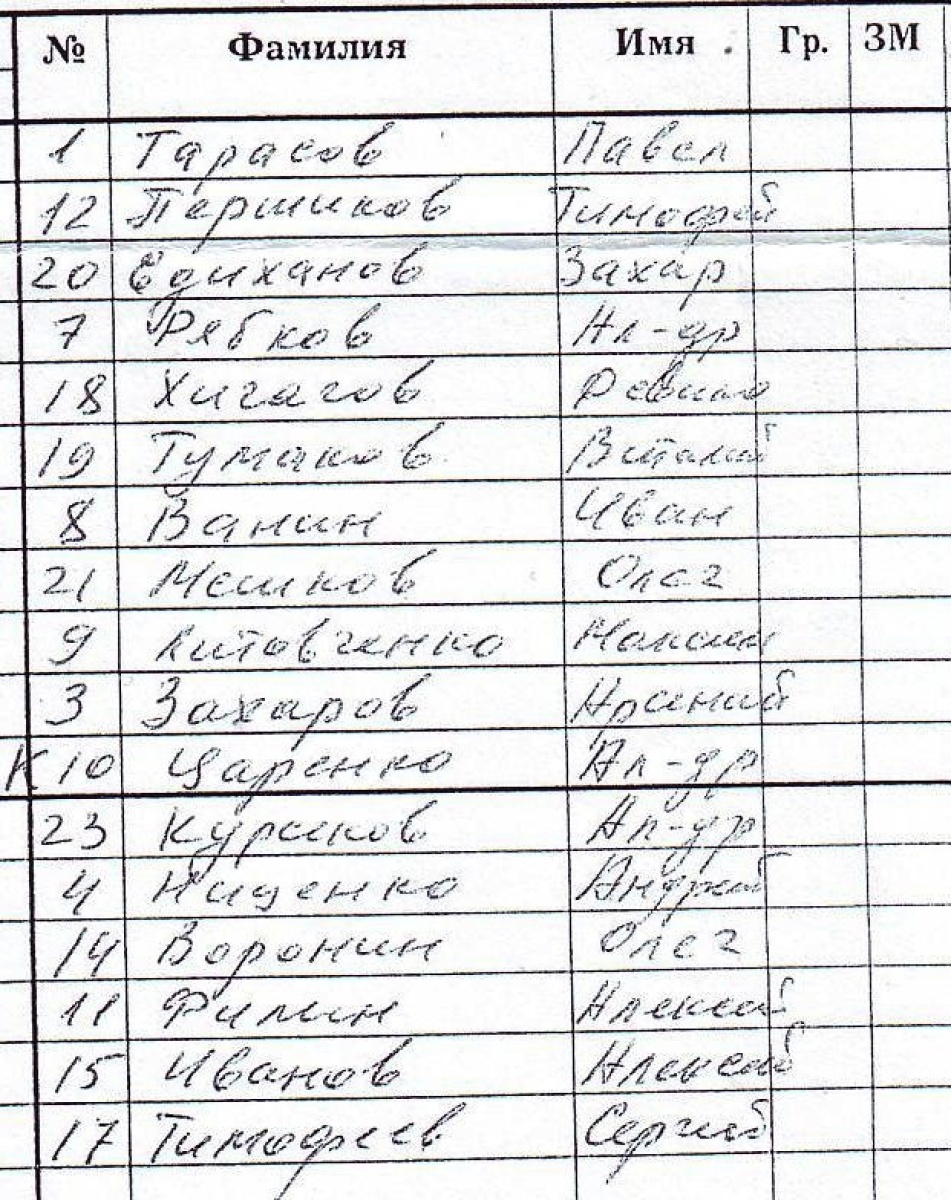 № Фамилия Имя Гр. ЗМ
1 Тарасов Павел
12 Першиков Тимофей
20 Едиханов Захар
7 Рябков Ал-др
18 Хигагов
19 Тумаков Виталий
8 Ванин Иван
21 Мешков Олег
9 Литовченко Максим
3 Захаров Арсений
К 10 Царенко Ал-др
23 Ал-др
4 Нищенко Андрей
14 Воронин Олег
11 Филин Алексей
15 Иванов Алексей
17 Тимофеев Сергей